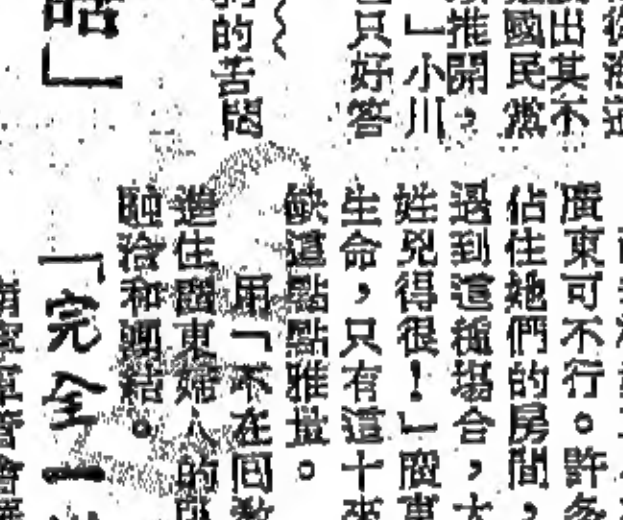 出其不
國民黨
推開，
」小川
只好答
的苦悶
話」
廣東可不行。許多
佔住她們的房間，
遇到這種場合，大
姓兇得很！」廣東
生命，只有這十來
歉這點點雅量。
用「不在同
進住廣東婦人的
融洽和團結。
「完全一